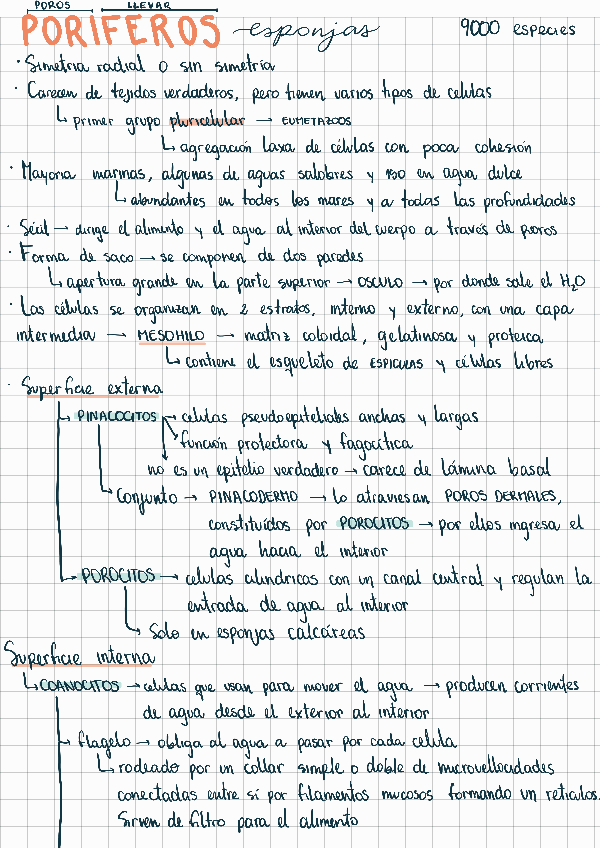 POROS LLEVAR
PORIFEROS - esponjas 9000 especies
· Simetria radial o sin simetria
· Carecen de tejidos verdaderos, pero tienen varios tipos de celulas
↳ primer grupo pluricelular → EUMETAZOOS
↳ agregación laxa de células con poca cohesión
· Mayoria marinas, algunas de aguas salobres y 150 en agua dulce
↳ abundantes en todos los mares y a todas las profundidades
· Sésil → dirige el alimento y el agua al interior del cuerpo a través de poros
· Forma de saco → se componen de dos paredes
↳ apertura grande en la parte superior → OSCULO → por donde sale el H₂O
· Las células se organizan en 2 estratos, interno y externo, con una capa
intermedia → MESOHILO → matriz coloidal, gelatinosa y proteica
↳ contiene el esqueleto de ESPICULAS y células libres
· Superficie externa
→ PINALOCITOS → celulas pseudoepiteliales anchas y largas
función protectora y fagocítica
no es un epitelio verdadero → carece de lámina basal
↳ Conjunto → PINACODERMO → lo atraviesan POROS DERMALES,
constituídos por POROCITOS → por ellos ingresa el
agua hacia el interior
→ POROCITOS → celulas cilindricas con un canal central y regulan la
entrada de agua al interior
↳ Solo en esponjas calcáreas
Superficie interna
↳ COANOCITOS → celulas que usan para mover el agua → producen corrientes
de agua desde el exterior al interior
→ flagelo → obliga al agua a pasar por cada celula
↳ rodeado por un collar simple o doble de microvellocidades
conectadas entre sí por filamentos mucosos formando un retículos.
Sirven de filtro para el alimento